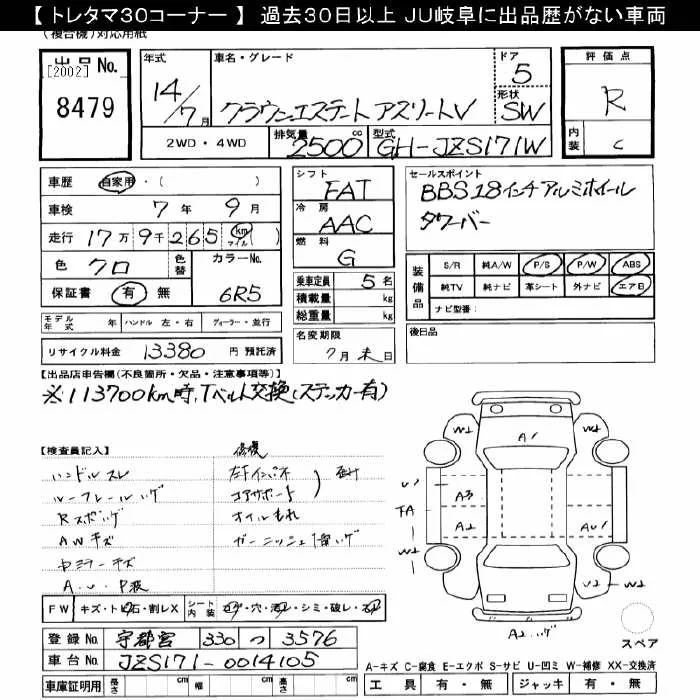 【 トレタマ30コーナー 】 過去30日以上 JU岐阜に出品歴がない車両
(複合機)対応用紙
出品 No.
[2002]
8479
年式
14/7月
車名・グレード
クラウンエステート アスリートV
ドア
5
形状
SW
評価点
R
内装
C
2WD・4WD
排気量
2500 cc
型式
GH-JZS171W
車歴 自家用・( )
車検 7年 9月
走行 17万9千265 km マイル ( )
色 クロ
色替
カラーNo.
6R5
保証書 有 無
モデル年式 年 ハンドル 左・右 ディーラー・並行
リサイクル料金 13380 円 預託済
シフト
FAT
冷房
AAC
燃料
G
乗車定員 5 名
積載量 kg
総重量 kg
名変期限
7月末日
セールスポイント
BBS18インチアルミホイール
タワーバー
装備品
S/R 純A/W P/S P/W ABS
純TV 純ナビ 革シート 外ナビ エアB
ナビ型番:
後日品
【出品店申告欄(不良箇所・欠品・注意事項等)】
※113700km時,Tベルト交換(ステッカー有)
【検査員記入】
修復
ハンドルスレ
ルーフレールハゲ
Rスポハゲ
AWキズ
A.U.P波
左Fインパネ
コアサポート
オイルもれ
W2
A1
W2
U1
A3
FA
A2
AU1
W2
U2
W2
スペア
FW キズ・トビ石・割レX シート内装 コゲ・穴・汚レ・シミ・破レ・スレ
登録No. 宇都宮 330 つ 3576
車台No. JZS171-0014105
車庫証明用 長さ cm 幅 cm 高さ cm
A-キズ C-腐食 E-エクボ S-サビ U-凹ミ W-補修 XX-交換済
工具 有・無 ジャッキ 有・無